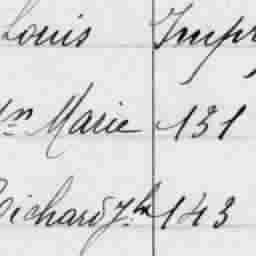 Louis Impr
Marie 131
Richard 143